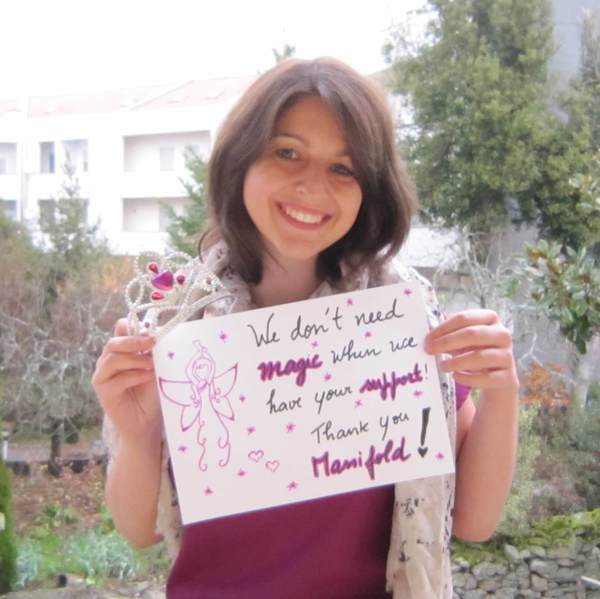 We don't need
magic when we
have your support!
Thank you
Manifold!